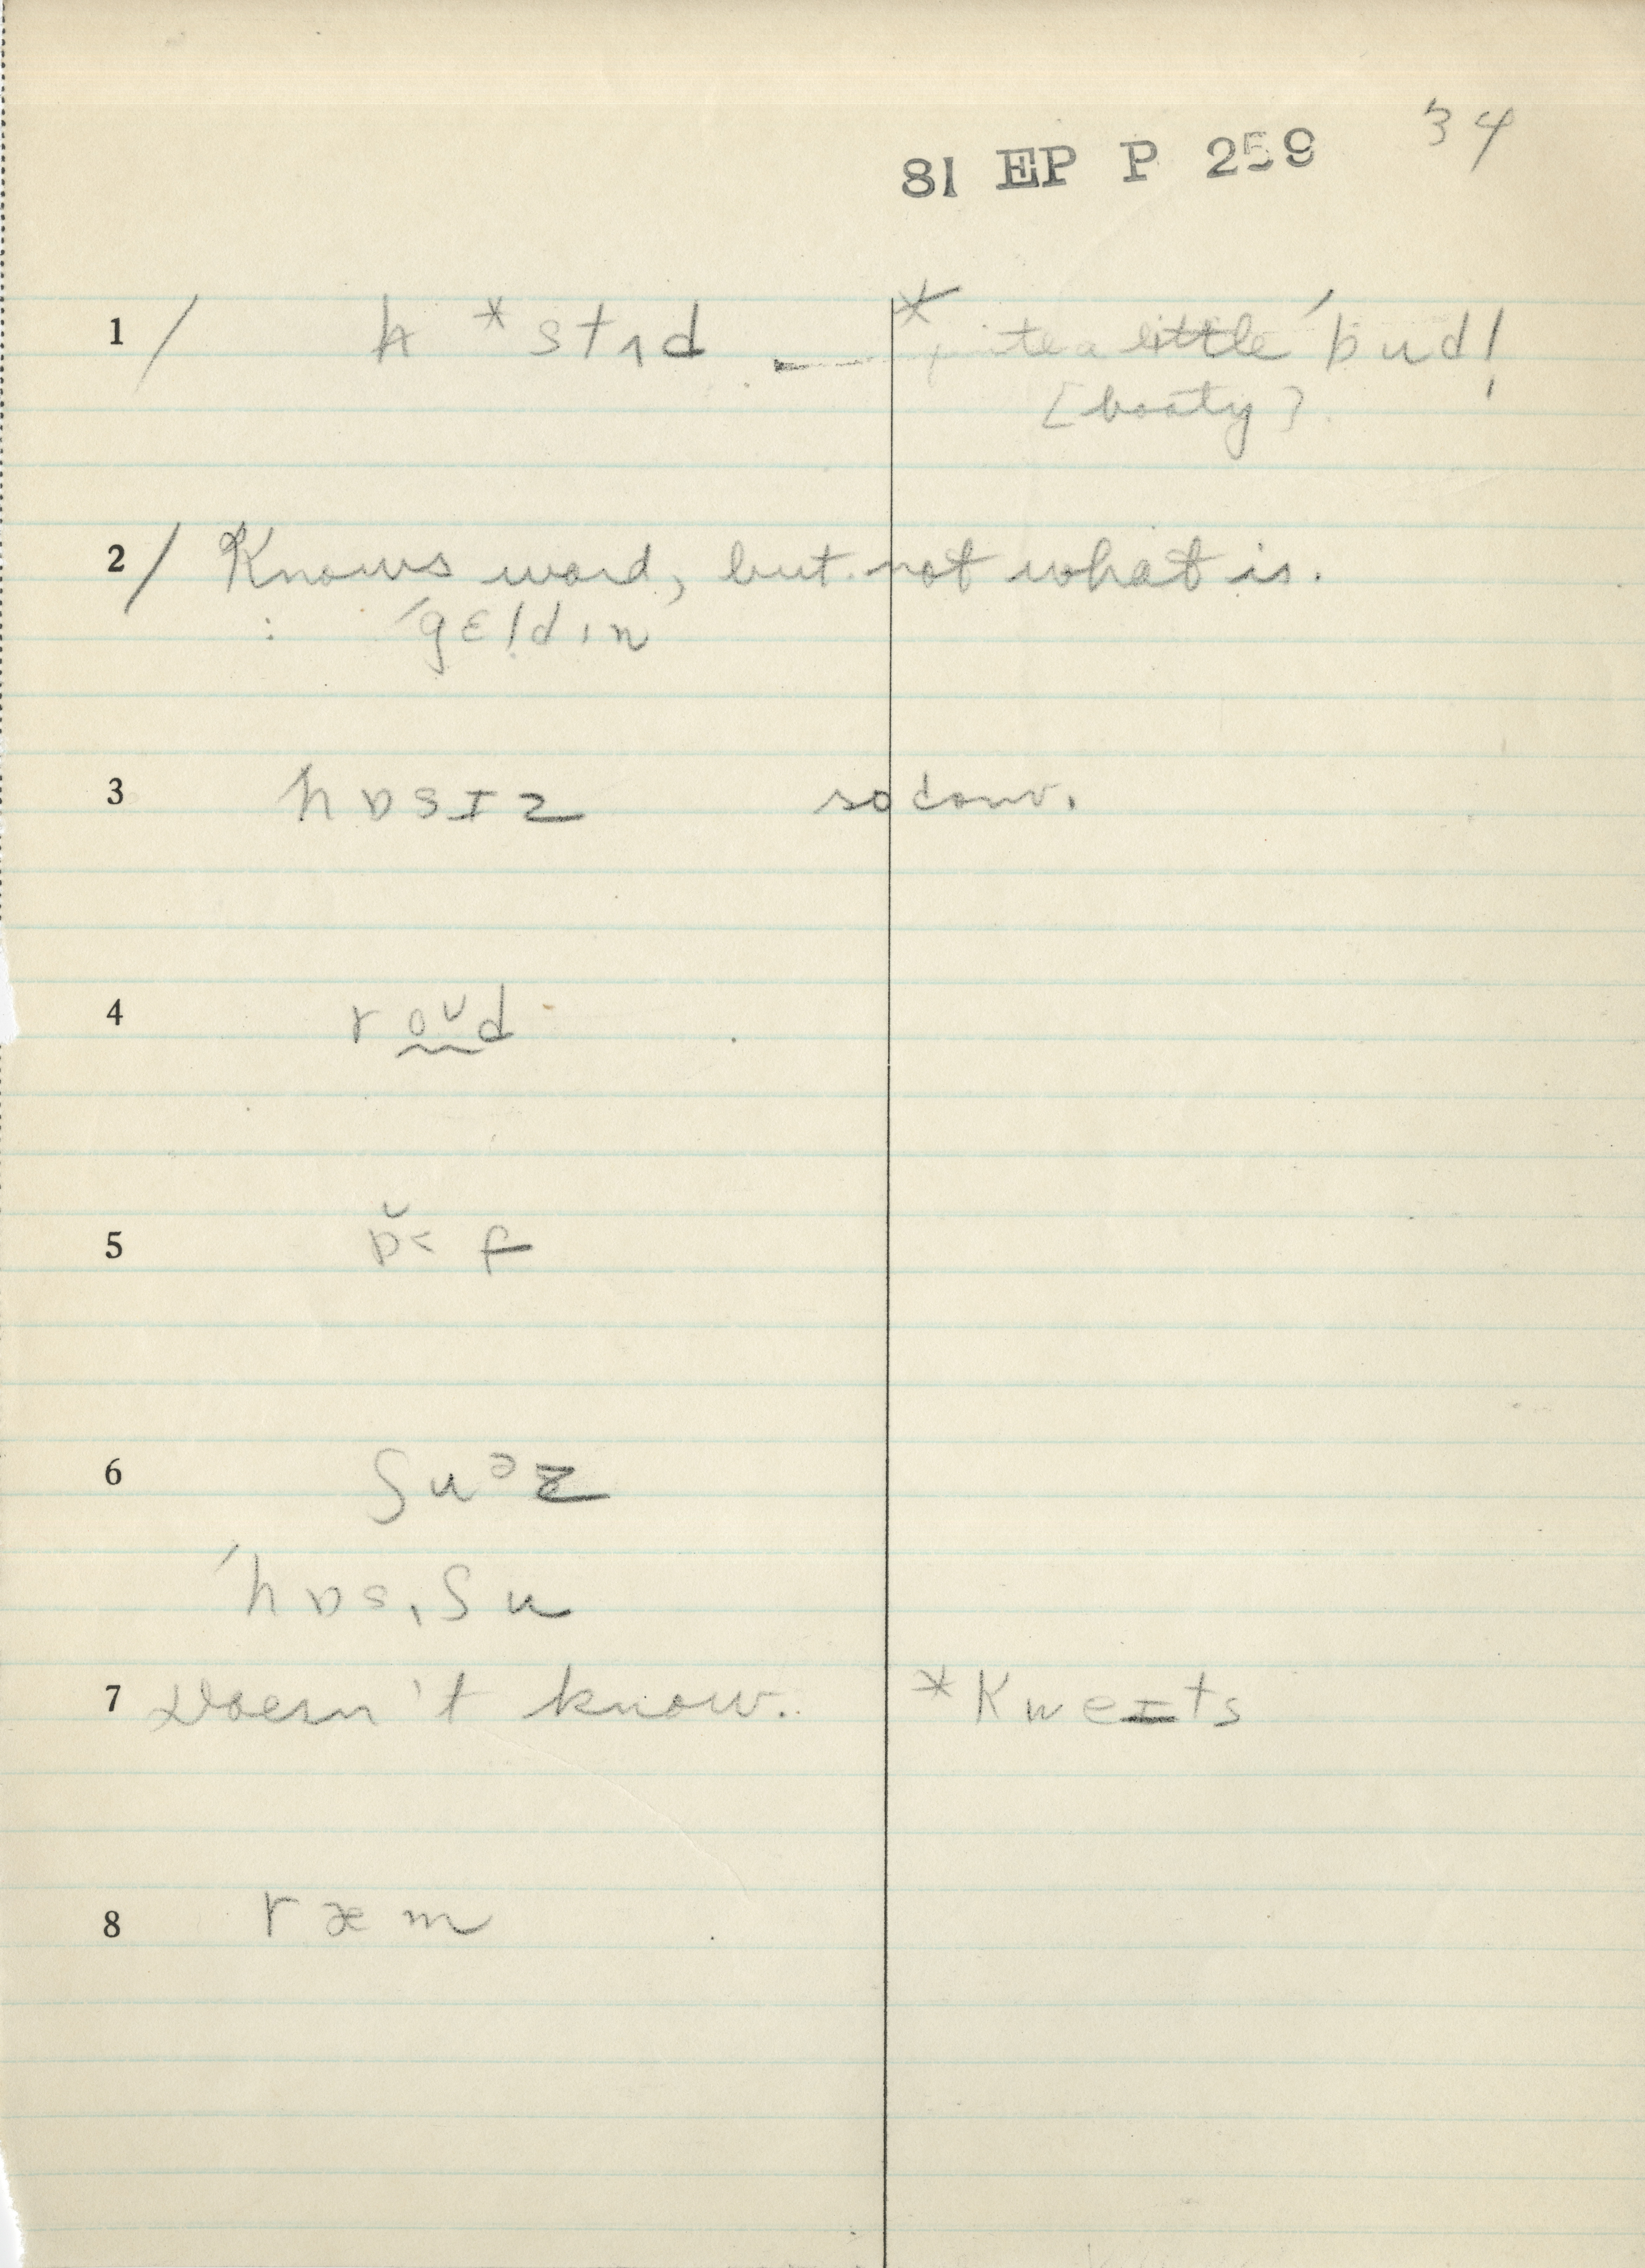 34
81 EP P 259
1 / h * stɿd * quite a little ˈbud!
[booty].
2 / Knows word, but not what is.
: ˈgɛldɪn
3 hɒsɪz so conv.
4 roᴜd
5 ɒ̆˂ f
6 ʃuᵊz
ˈhɒsˌʃu
7 Doesn't know. * Kweɪts
8 ræm